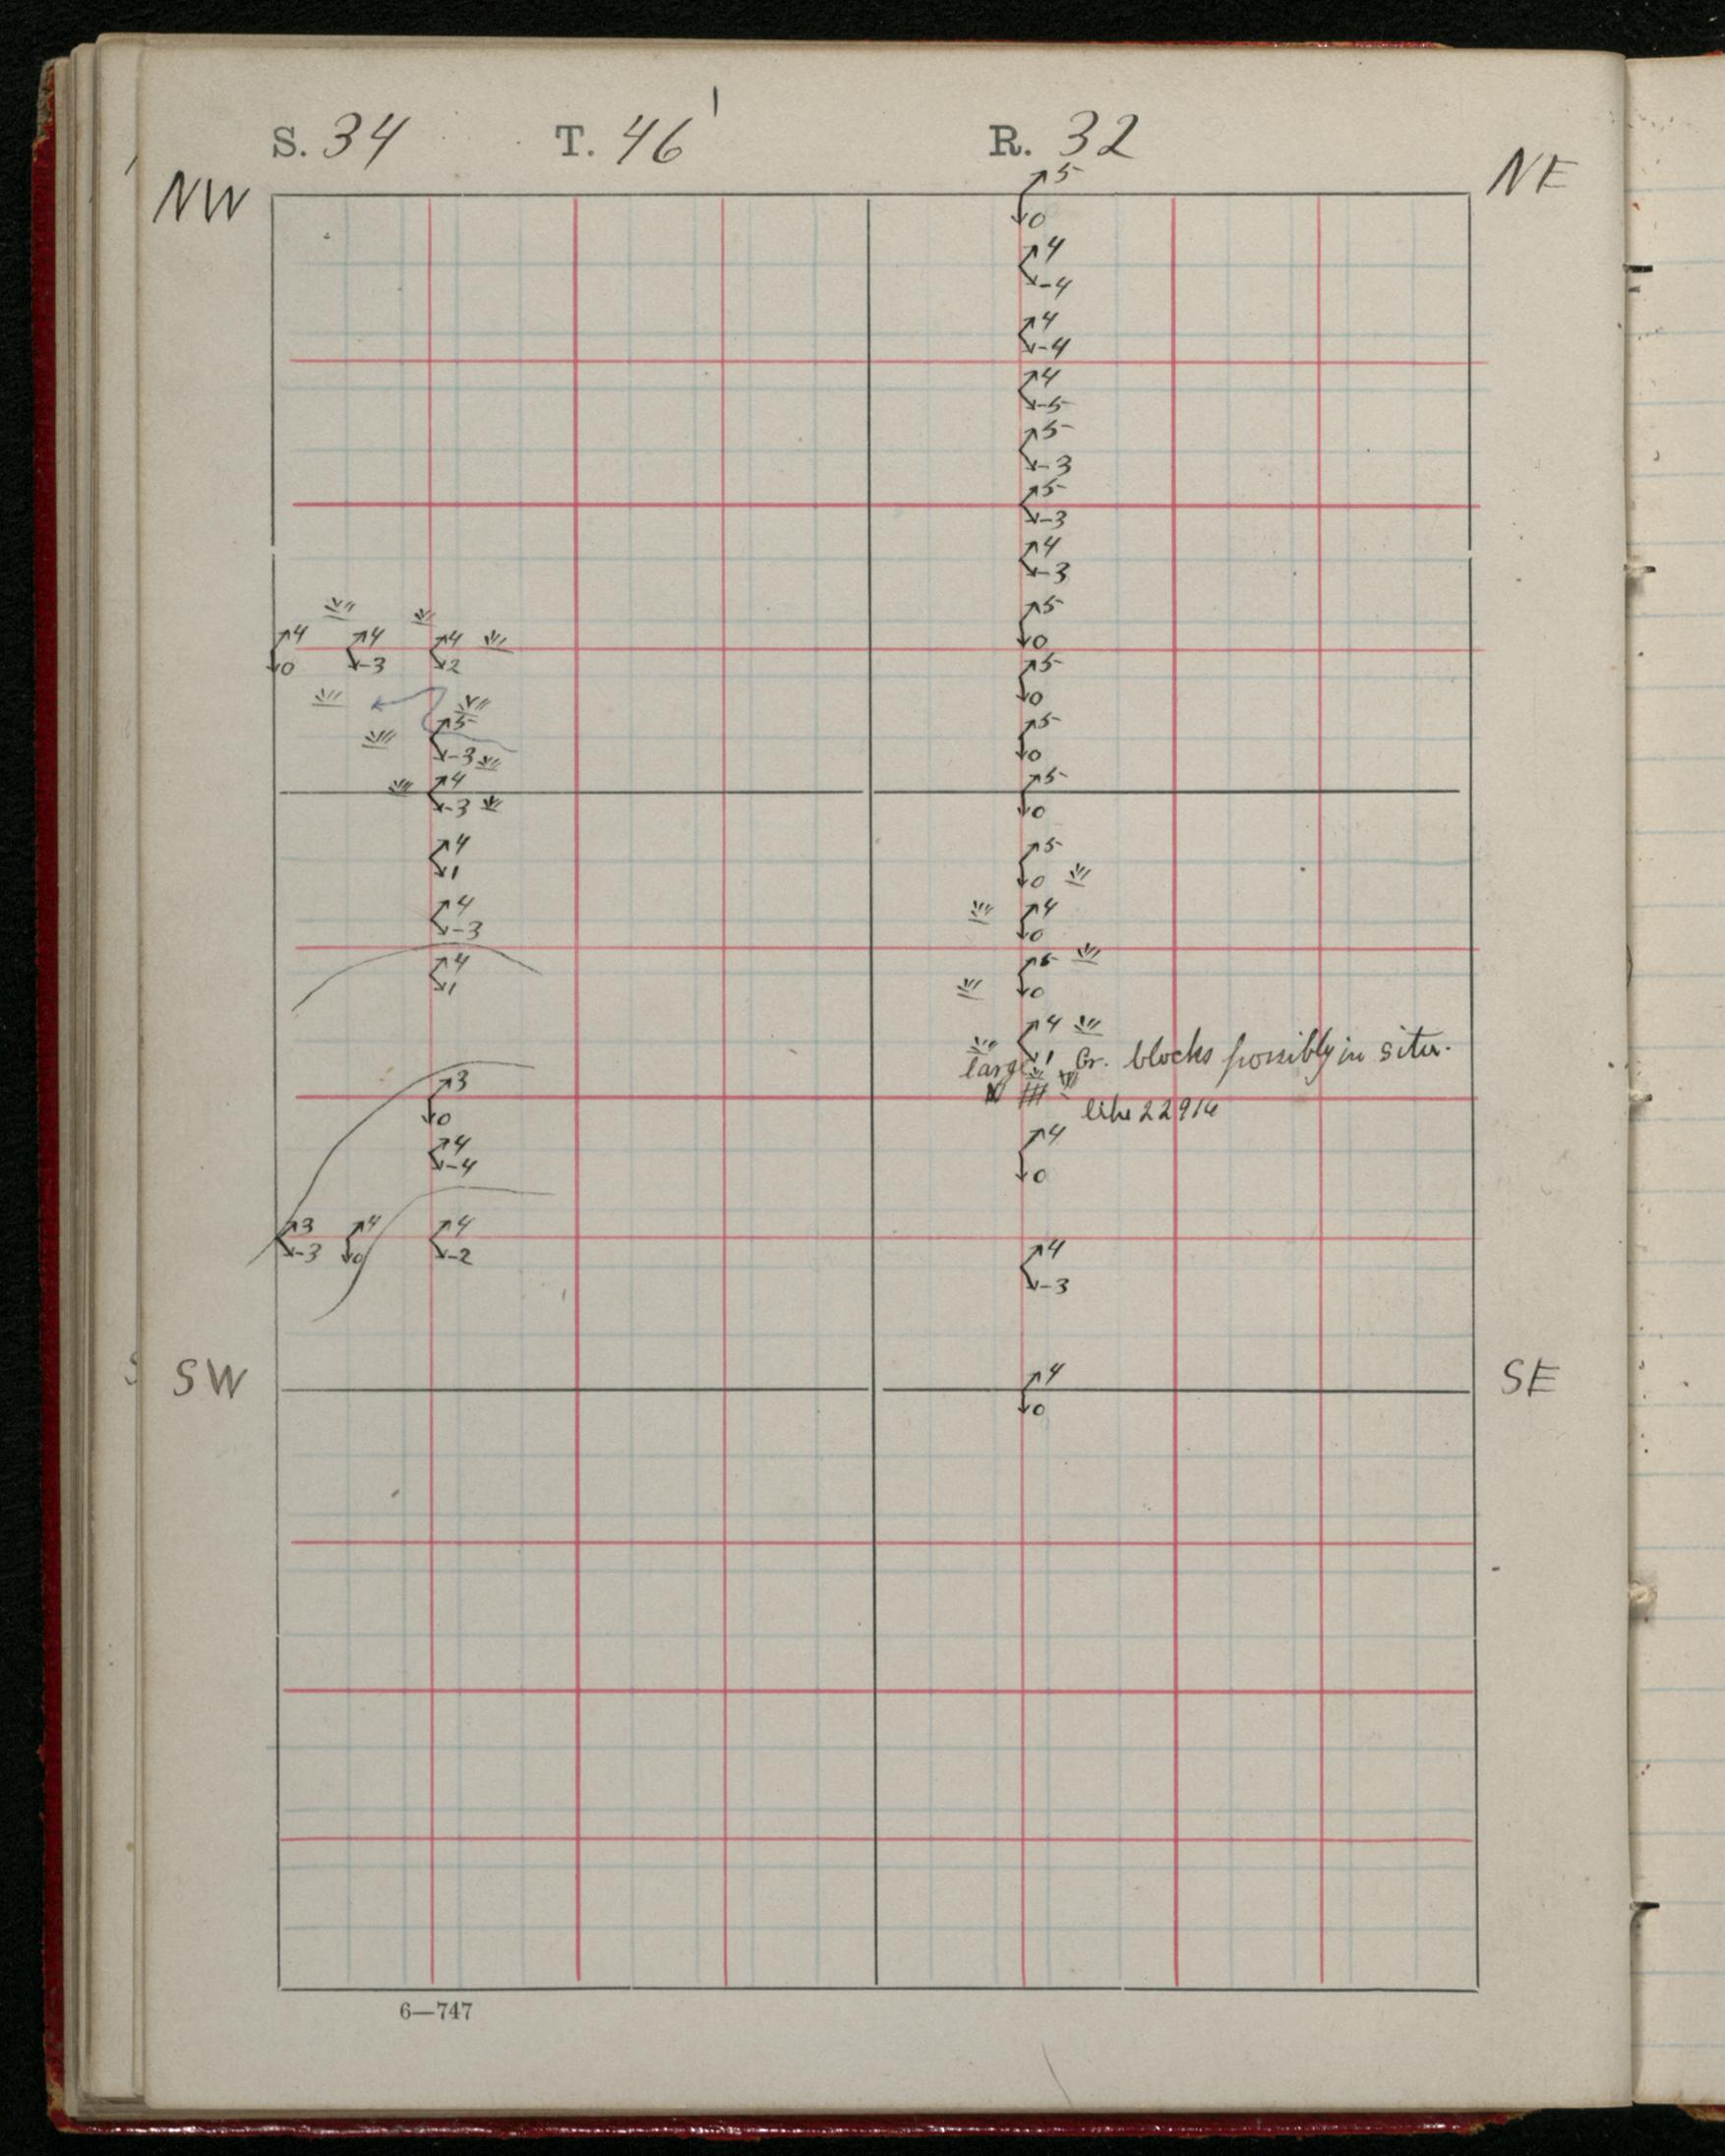 S. 34 T. 46 R. 32
NW NE
5
0
4
-4
4
-4
4
-5
5
-3
5
-3
4
-3
4 4 4 5
0 -3 2 0
5
0
5 5
-3 0
4 5
-3 0
4 5
1 0
4 4
-3 0
4 5
1 0
4
1
large Gr. blocks possibly in situ.
N
3
0 like 22914
4 4
-4 0
3 4 4 4
-3 0 -2 -3
SW SE
4
0
6—747